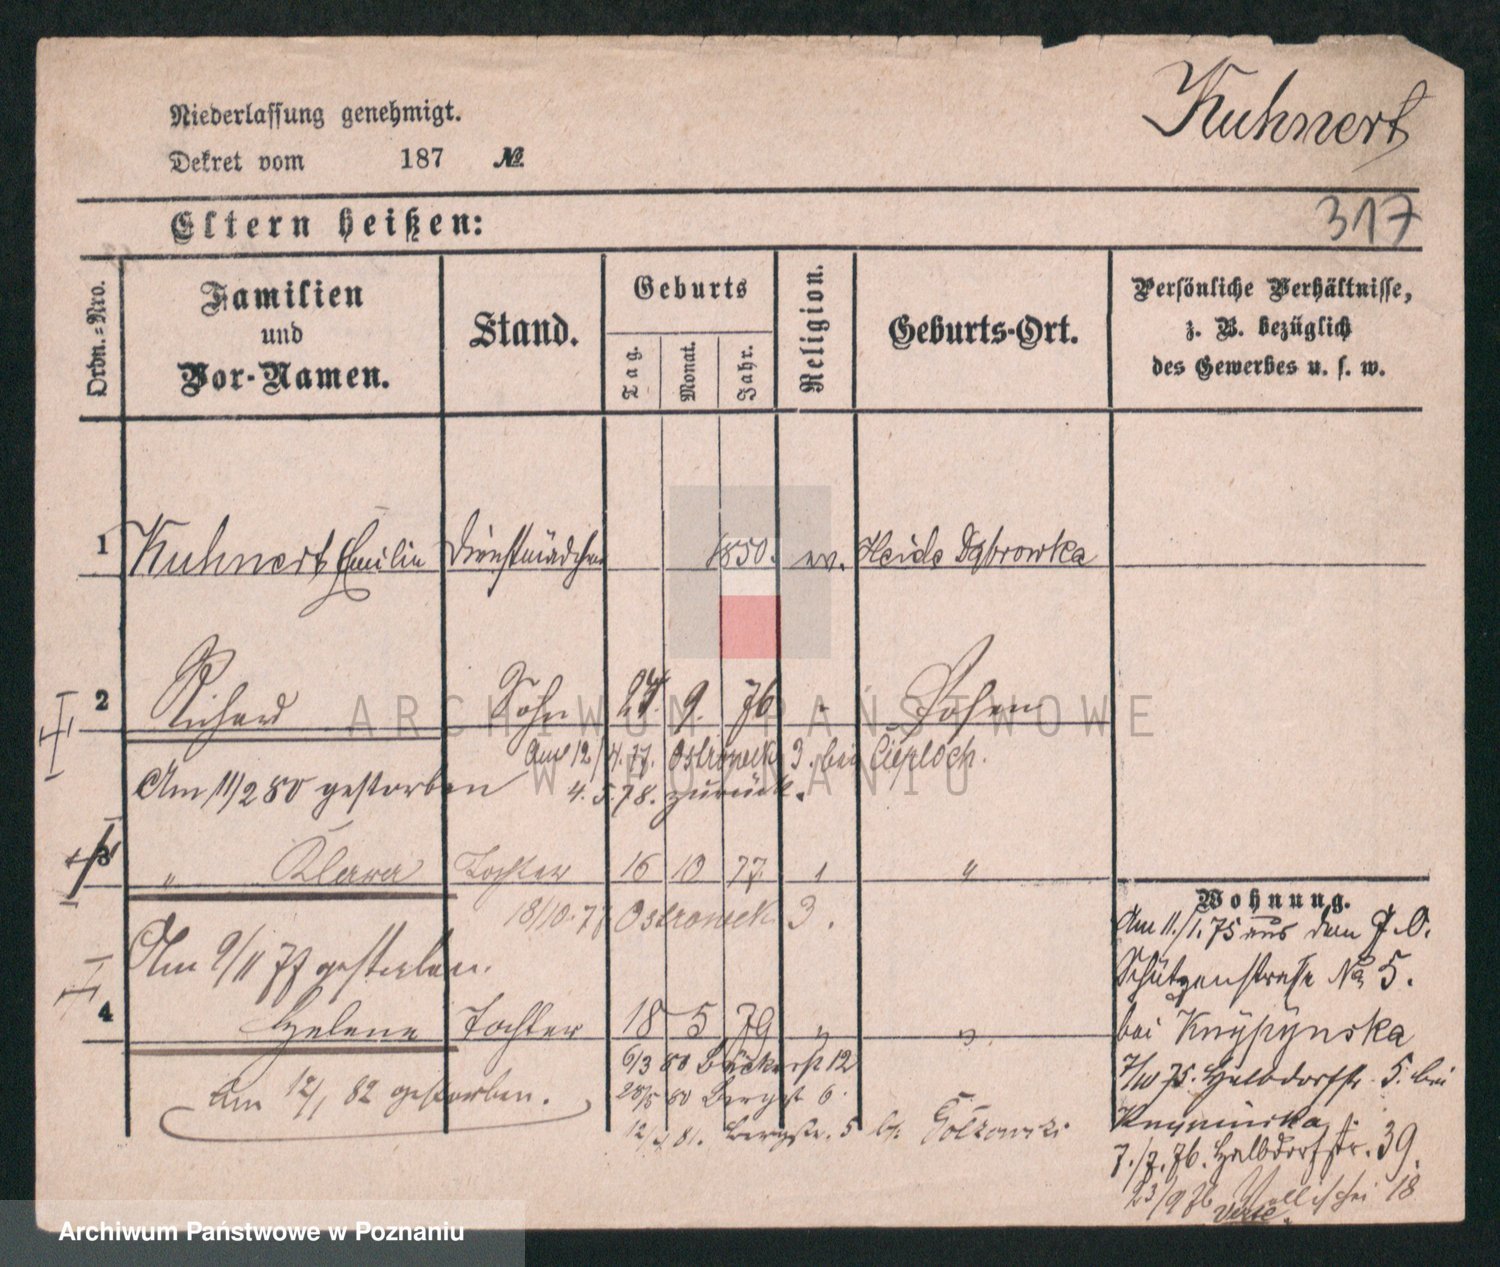 Kuhnert
Niederlassung genehmigt.
Dekret vom 187 №
317
Eltern heißen:
Ordn.-Nro.
Familien und Vor-Namen.
Stand.
Geburts
Tag. Monat. Jahr.
Religion.
Geburts-Ort.
Persönliche Verhältnisse,
z. B. bezüglich
des Gewerbes u. s. w.
1 Kuhnert Emilie Dienstmädchen 1850. ev. Heide Dąbrowka
2 Richard Sohn 27. 9. 76 " Posen
Am 12/4. 77. Ostrowek 3. bei
Am 11/2 80 gestorben 4. 5. 78. zurück.
3 " Klara Tochter 16 10 77. " "
18/10. 77 Ostrowek 3.
Am 9/11 77 gestorben.
4 Helene Tochter 18 5 79 " "
6/3 80 Bäckerst 12
Am 12/1 82 gestorben.
28/5 80 Bergst 6.
81. Bergstr. 5 b.
Wohnung.
Am 11./1. 75 aus dem J. O.
Schützenstraße No 5.
bei
7/10 75. Halbdorfstr. 5. bei
7./7. 76. Halbdorfstr. 39.
23/9 76 Wallischei 18
Verte.
ARCHIWUM PAŃSTWOWE
W POZNANIU
Archiwum Państwowe w Poznaniu